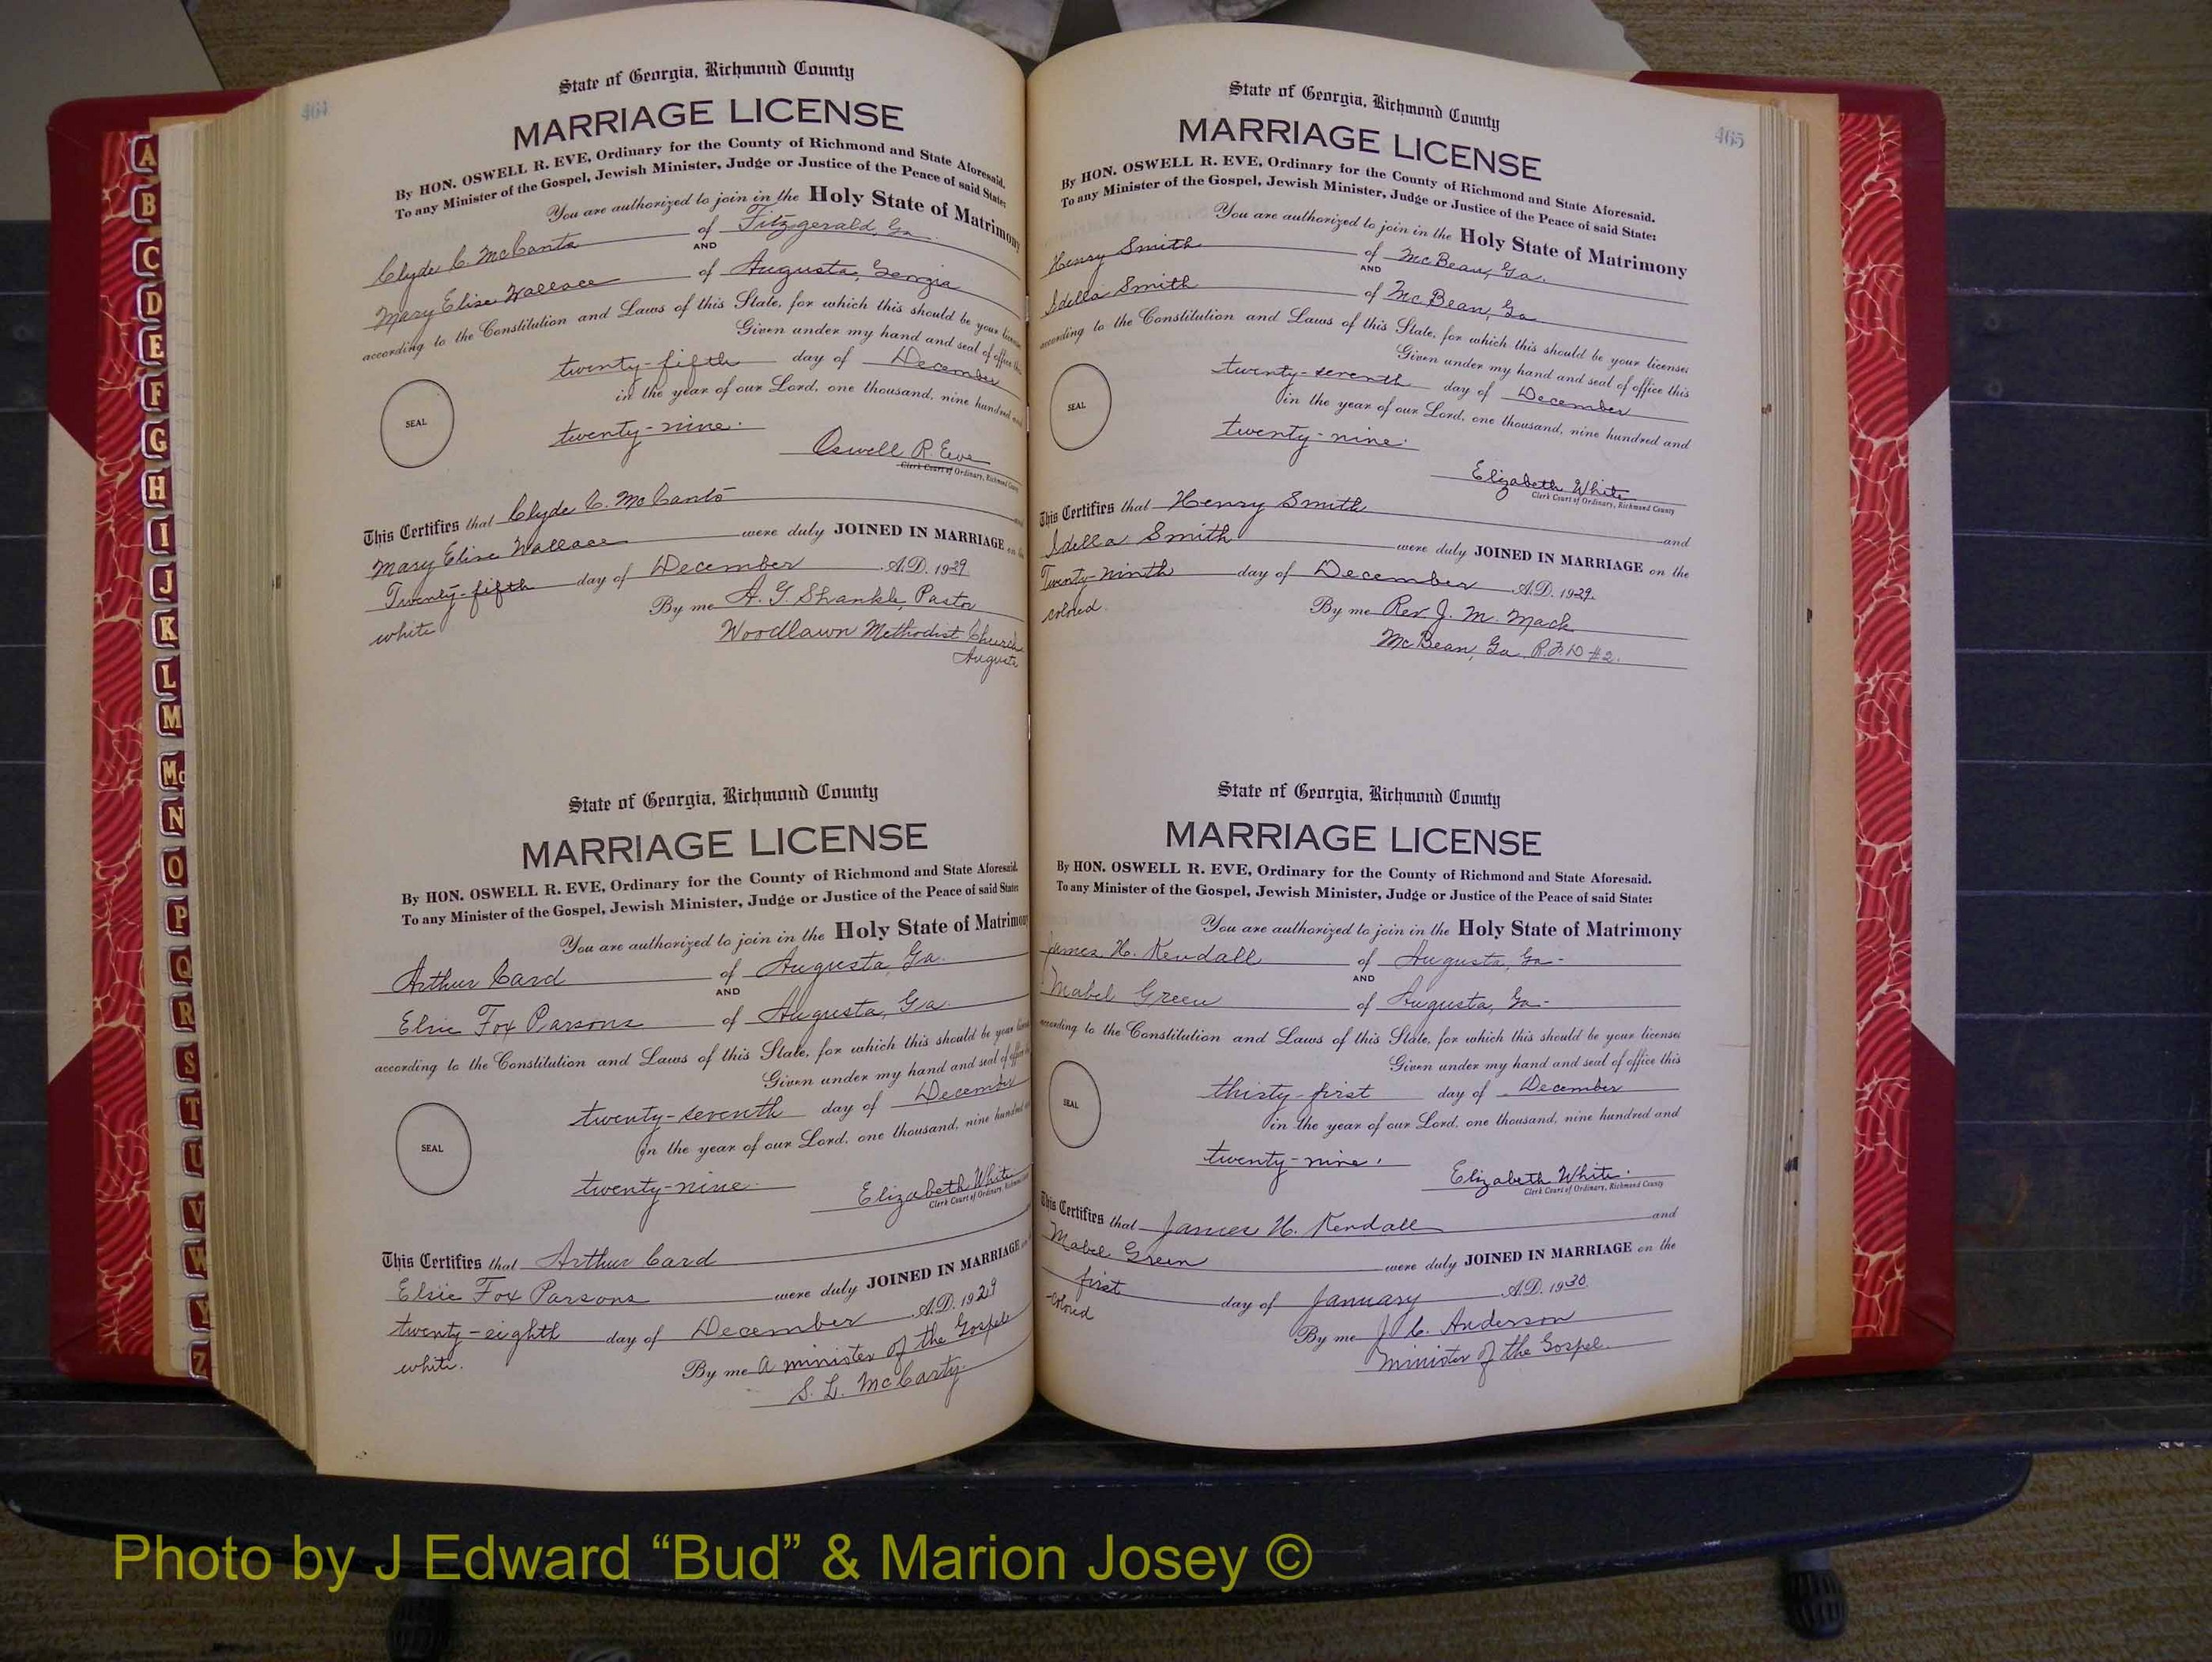 A
B
C
D
E
F
G
H
I
J
K
L
M
Mc
N
O
P
Q
R
S
T
U
V
W
Y
Z
464
State of Georgia, Richmond County
MARRIAGE LICENSE
By HON. OSWELL R. EVE, Ordinary for the County of Richmond and State Aforesaid.
To any Minister of the Gospel, Jewish Minister, Judge or Justice of the Peace of said State:
You are authorized to join in the Holy State of Matrimony
Clyde C. McCants of Fitzgerald, Ga.
AND
Mary Elise Wallace of Augusta, Georgia
according to the Constitution and Laws of this State, for which this should be your license
Given under my hand and seal of office this
twenty-fifth day of December
in the year of our Lord, one thousand, nine hundred and
SEAL
twenty-nine.
Oswell R. Eve
Clerk Court of Ordinary, Richmond County
This Certifies that Clyde C. McCants and
Mary Elise Wallace were duly JOINED IN MARRIAGE on the
Twenty-fifth day of December A.D. 1929
white By me A. G. Shankle, Pastor
Woodlawn Methodist Church
Augusta
State of Georgia, Richmond County
MARRIAGE LICENSE
By HON. OSWELL R. EVE, Ordinary for the County of Richmond and State Aforesaid.
To any Minister of the Gospel, Jewish Minister, Judge or Justice of the Peace of said State:
You are authorized to join in the Holy State of Matrimony
Arthur Card of Augusta, Ga.
AND
Elsie Fox Parsons of Augusta, Ga.
according to the Constitution and Laws of this State, for which this should be your license
Given under my hand and seal of office this
twenty-seventh day of December
in the year of our Lord, one thousand, nine hundred
SEAL
twenty-nine.
Elizabeth White
Clerk Court of Ordinary, Richmond
This Certifies that Arthur Card
Elsie Fox Parsons were duly JOINED IN MARRIAGE
twenty-eighth day of December A.D. 1929
white. By me A minister of the Gospel
S. L. McCarty.
465
State of Georgia, Richmond County
MARRIAGE LICENSE
By HON. OSWELL R. EVE, Ordinary for the County of Richmond and State Aforesaid.
To any Minister of the Gospel, Jewish Minister, Judge or Justice of the Peace of said State:
You are authorized to join in the Holy State of Matrimony
Henry Smith of McBean, Ga.
AND
Idella Smith of McBean, Ga
according to the Constitution and Laws of this State, for which this should be your license:
Given under my hand and seal of office this
twenty-seventh day of December
in the year of our Lord, one thousand, nine hundred and
SEAL
twenty-nine.
Elizabeth White
Clerk Court of Ordinary, Richmond County
This Certifies that Henry Smith and
Idella Smith were duly JOINED IN MARRIAGE on the
Twenty-ninth day of December A.D. 1929.
colored. By me Rev. J. M. Mack
McBean, Ga R.F.D #2.
State of Georgia, Richmond County
MARRIAGE LICENSE
By HON. OSWELL R. EVE, Ordinary for the County of Richmond and State Aforesaid.
To any Minister of the Gospel, Jewish Minister, Judge or Justice of the Peace of said State:
You are authorized to join in the Holy State of Matrimony
James H. Kendall of Augusta, Ga-
AND
Mabel Green of Augusta, Ga-
according to the Constitution and Laws of this State, for which this should be your license:
Given under my hand and seal of office this
thirty-first day of December
in the year of our Lord, one thousand, nine hundred and
SEAL
twenty-nine.
Elizabeth White.
Clerk Court of Ordinary, Richmond County
This Certifies that James H. Kendall and
Mabel Green were duly JOINED IN MARRIAGE on the
first day of January A.D. 1930.
colored By me J. C. Anderson
Minister of the Gospel.
Photo by J Edward “Bud” & Marion Josey ©